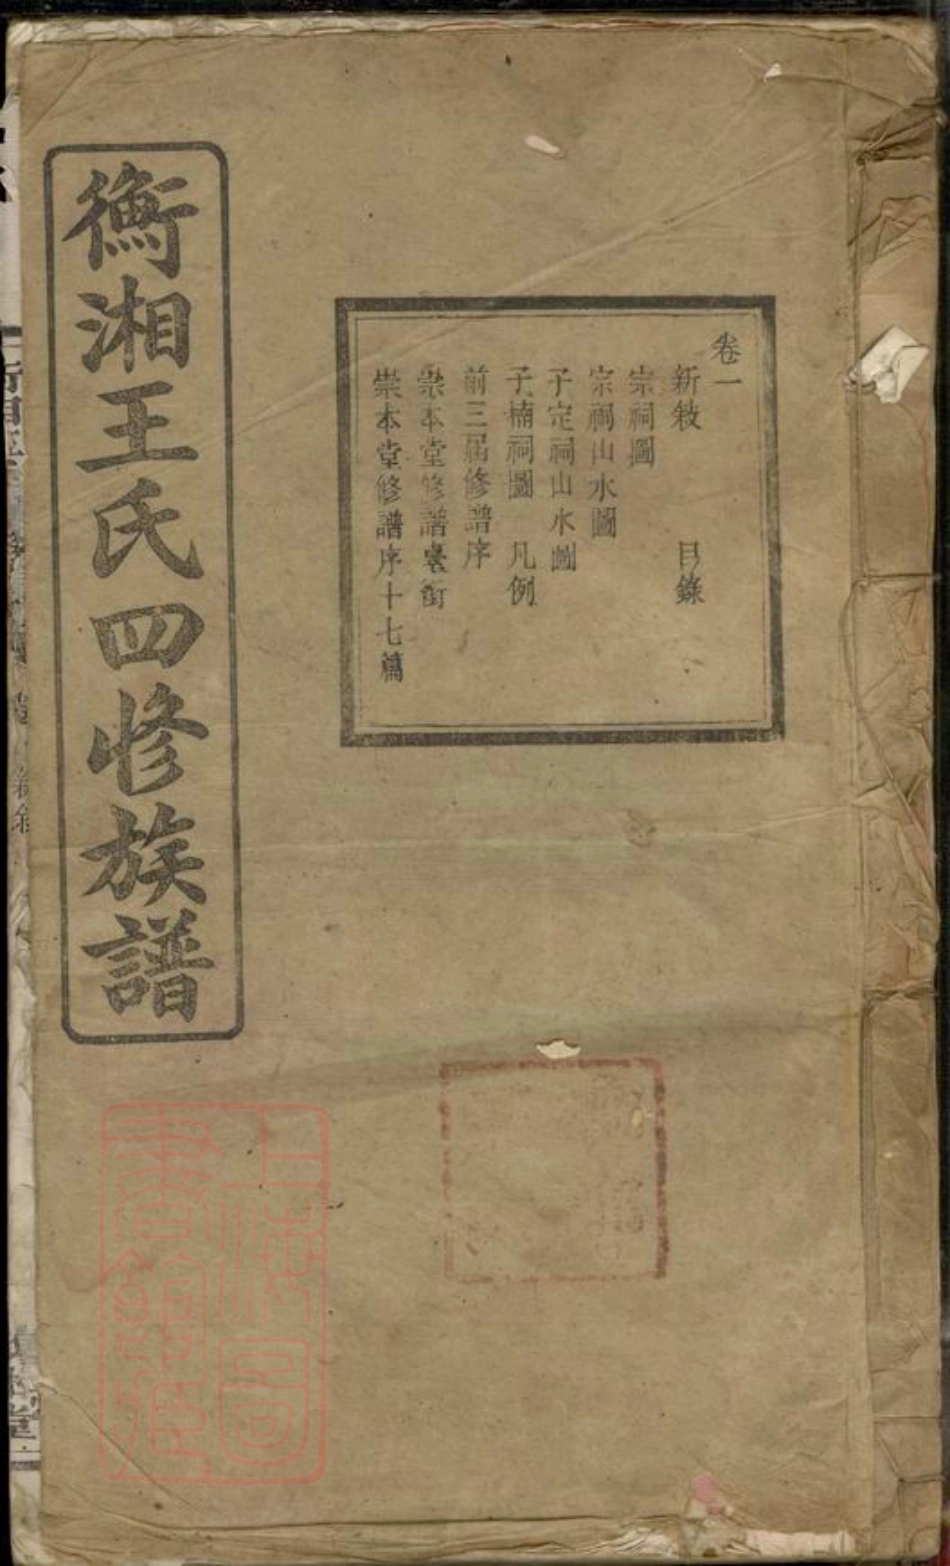 衡湘王氏四修族譜
卷一
新敍 目錄
宗祠圖
宗祠山水圖
子定祠山水圖
子楠祠圖 凡例
前三屆修譜序
崇本堂修譜銜
崇本堂修譜序十七篇
上海圖
書館藏